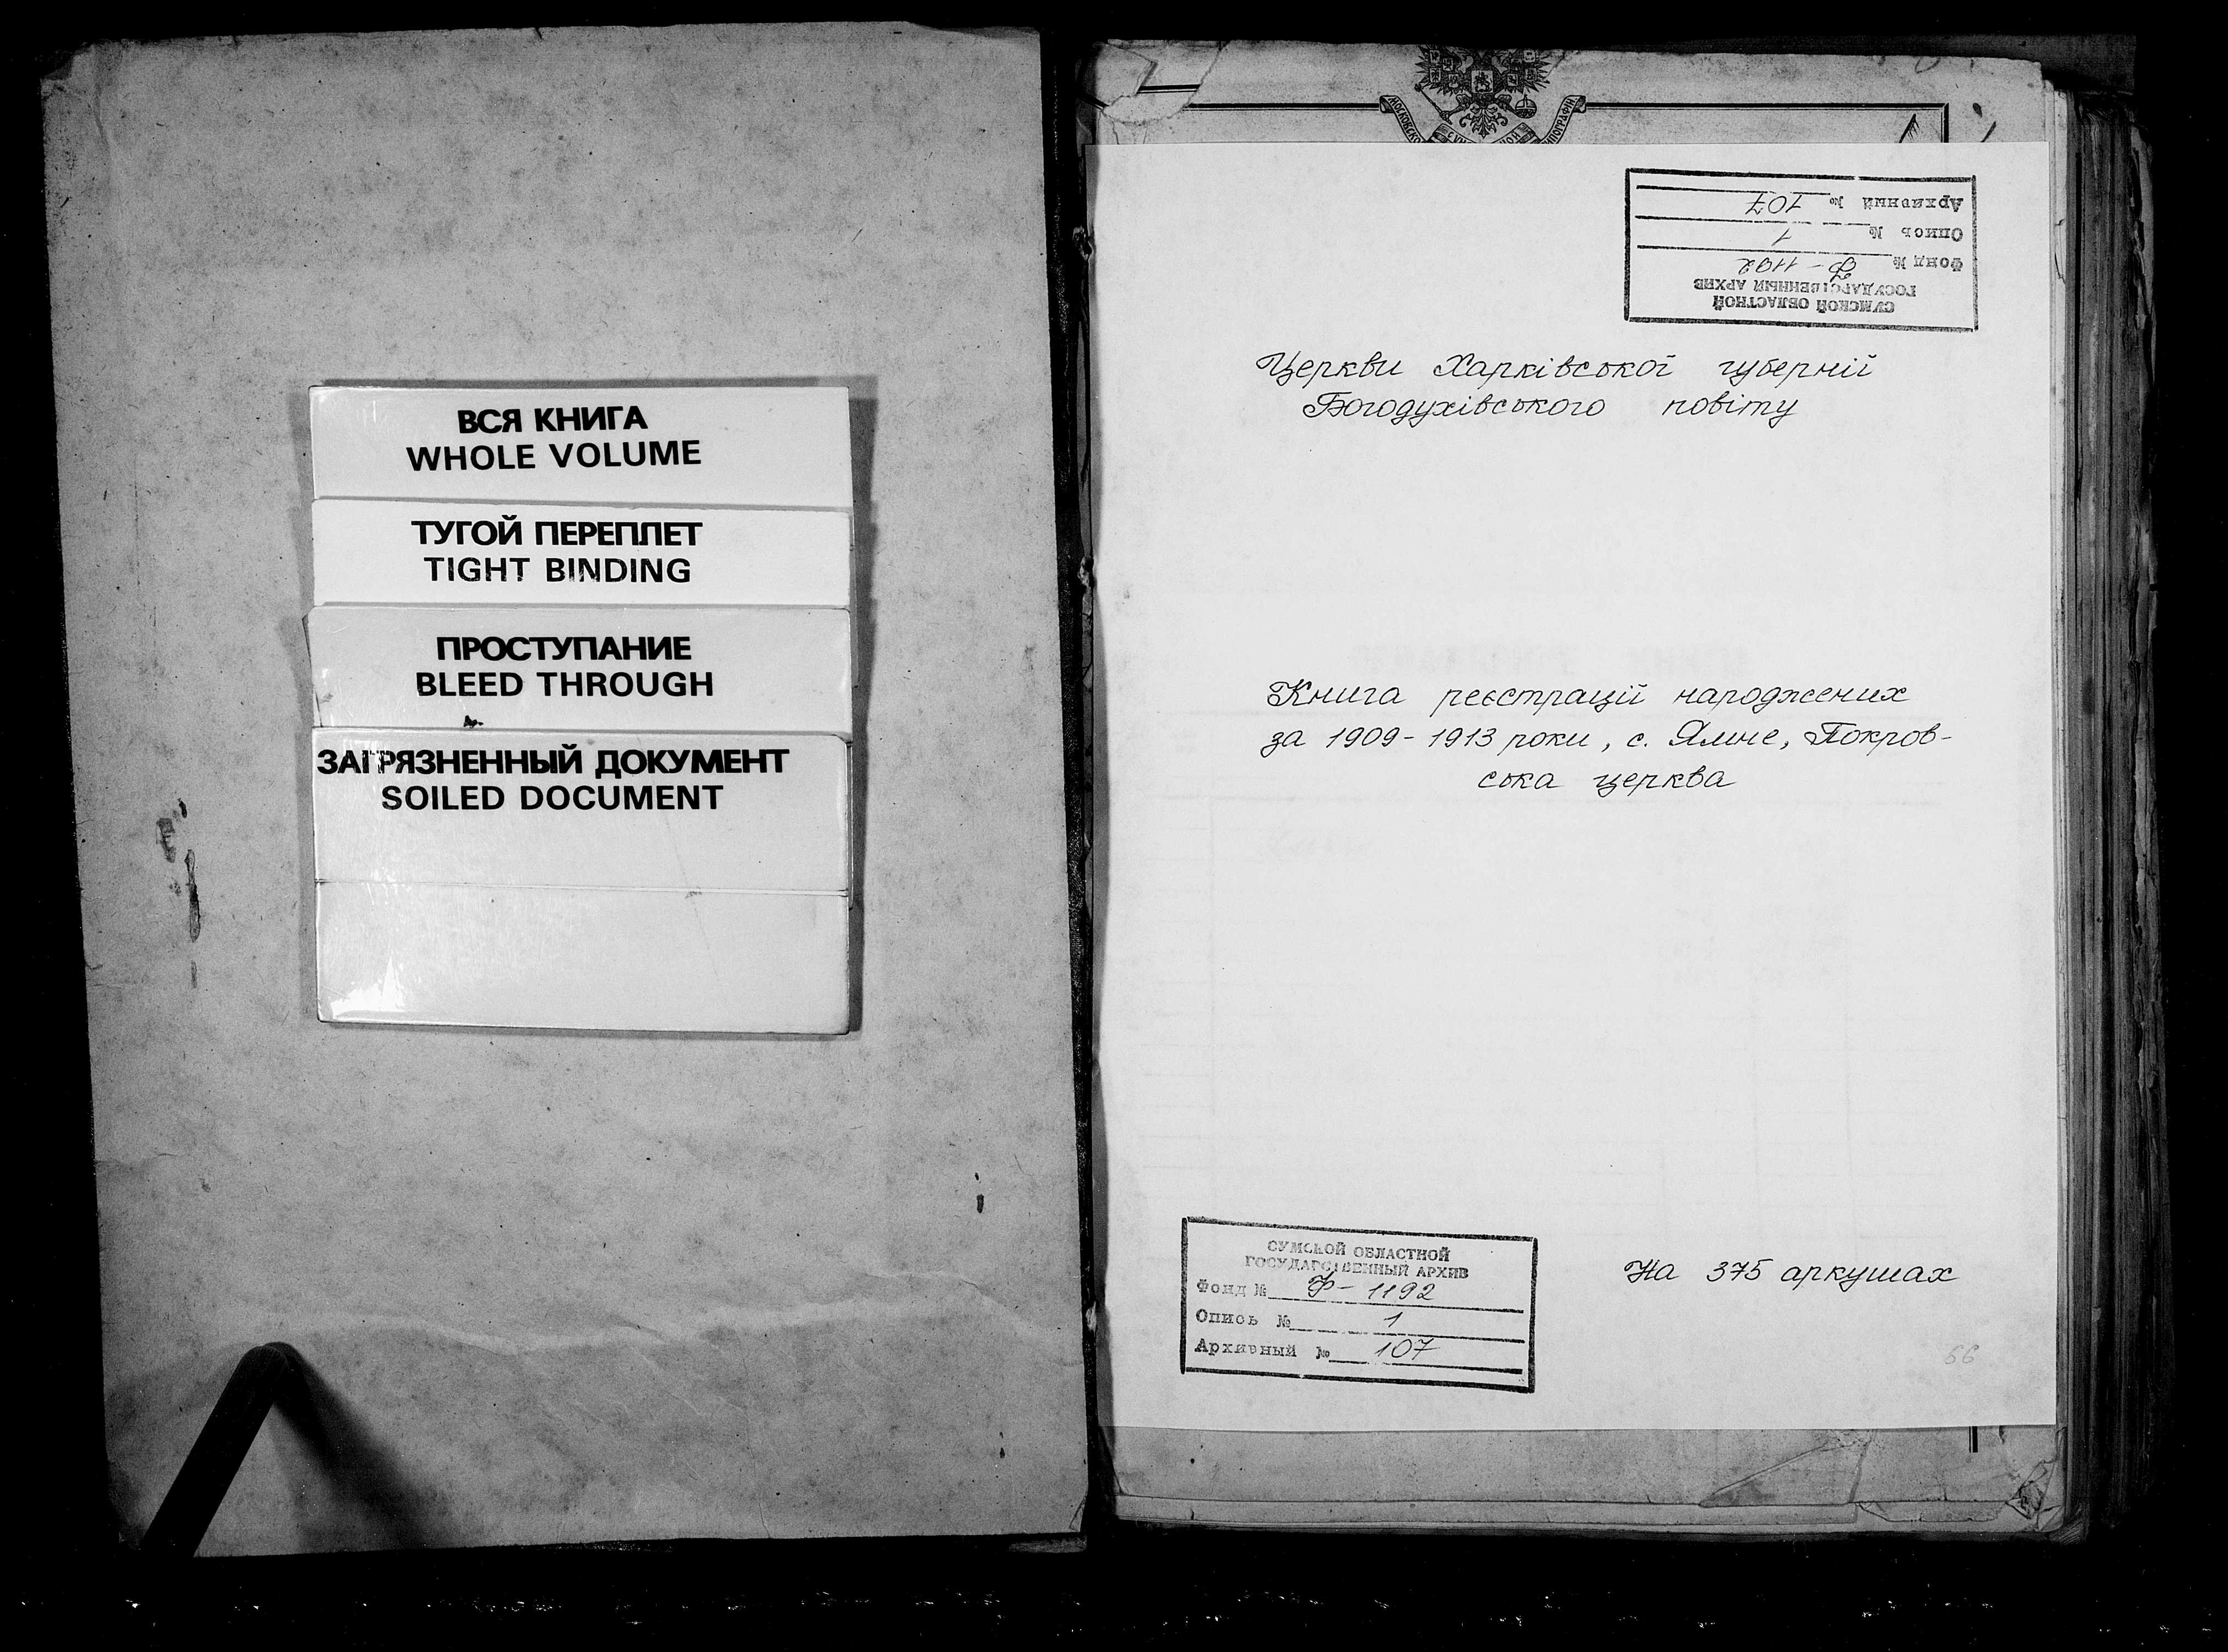 ВСЯ КНИГА
WHOLE VOLUME
ТУГОЙ ПЕРЕПЛЕТ
TIGHT BINDING
ПРОСТУПАНИЕ
BLEED THROUGH
ЗАГРЯЗНЕННЫЙ ДОКУМЕНТ
SOILED DOCUMENT
МОСКОВСКО
СУНО
НОН
ИПОГРАФІИ
СУМСКОЙ ОБЛАСТНОЙ
ГОСУДАРСТВЕННЫЙ АРХИВ
Фонд № Ф-1192
Опись № 1
Архивный № 107
Церкви Харківської губернії
Богодухівського повіту
Книга реєстрації народжених
за 1909-1913 роки, с. Ямне, Покров-
ська церква
СУМСКОЙ ОБЛАСТНОЙ
ГОСУДАРСТВЕННЫЙ АРХИВ
Фонд № Ф-1192
Опись № 1
Архивный № 107
На 375 аркушах
66